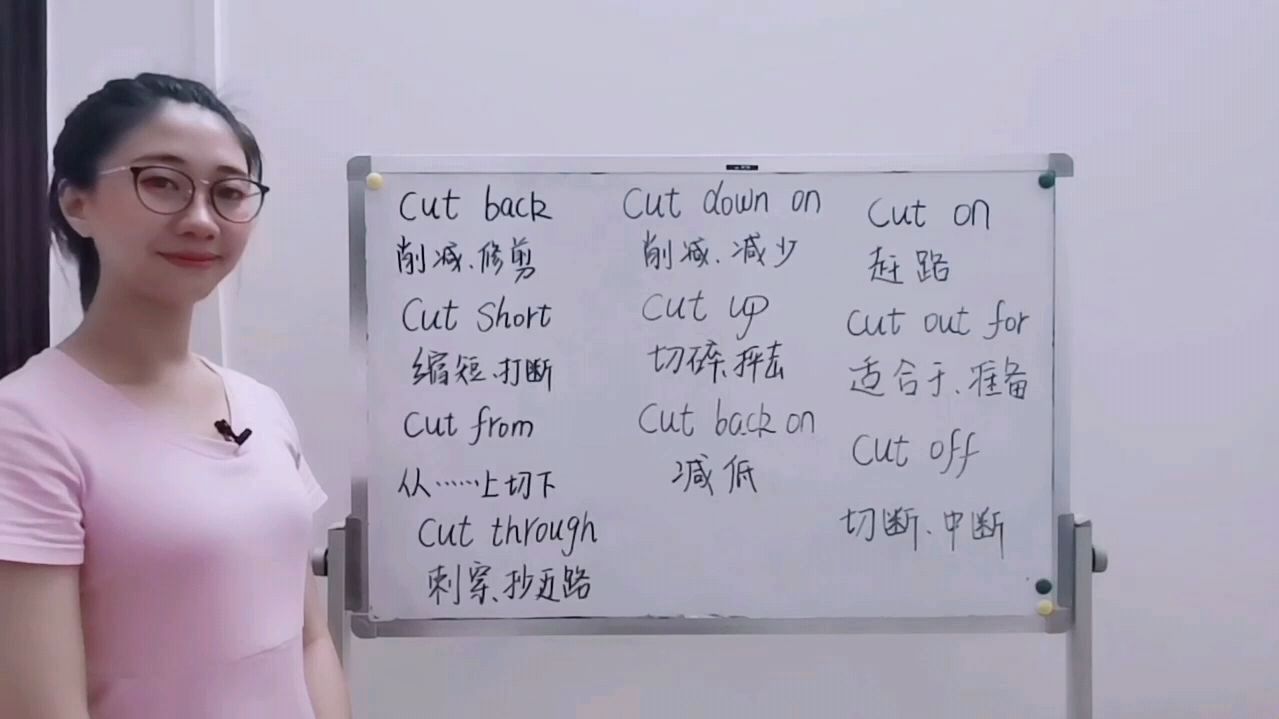 Cut back
削减、修剪
Cut short
缩短、打断
Cut from
从……上切下
Cut through
刺穿、抄近路
Cut down on
削减、减少
Cut up
切碎、抨击
Cut back on
减低
Cut on
赶路
Cut out for
适合于、准备
Cut off
切断、中断